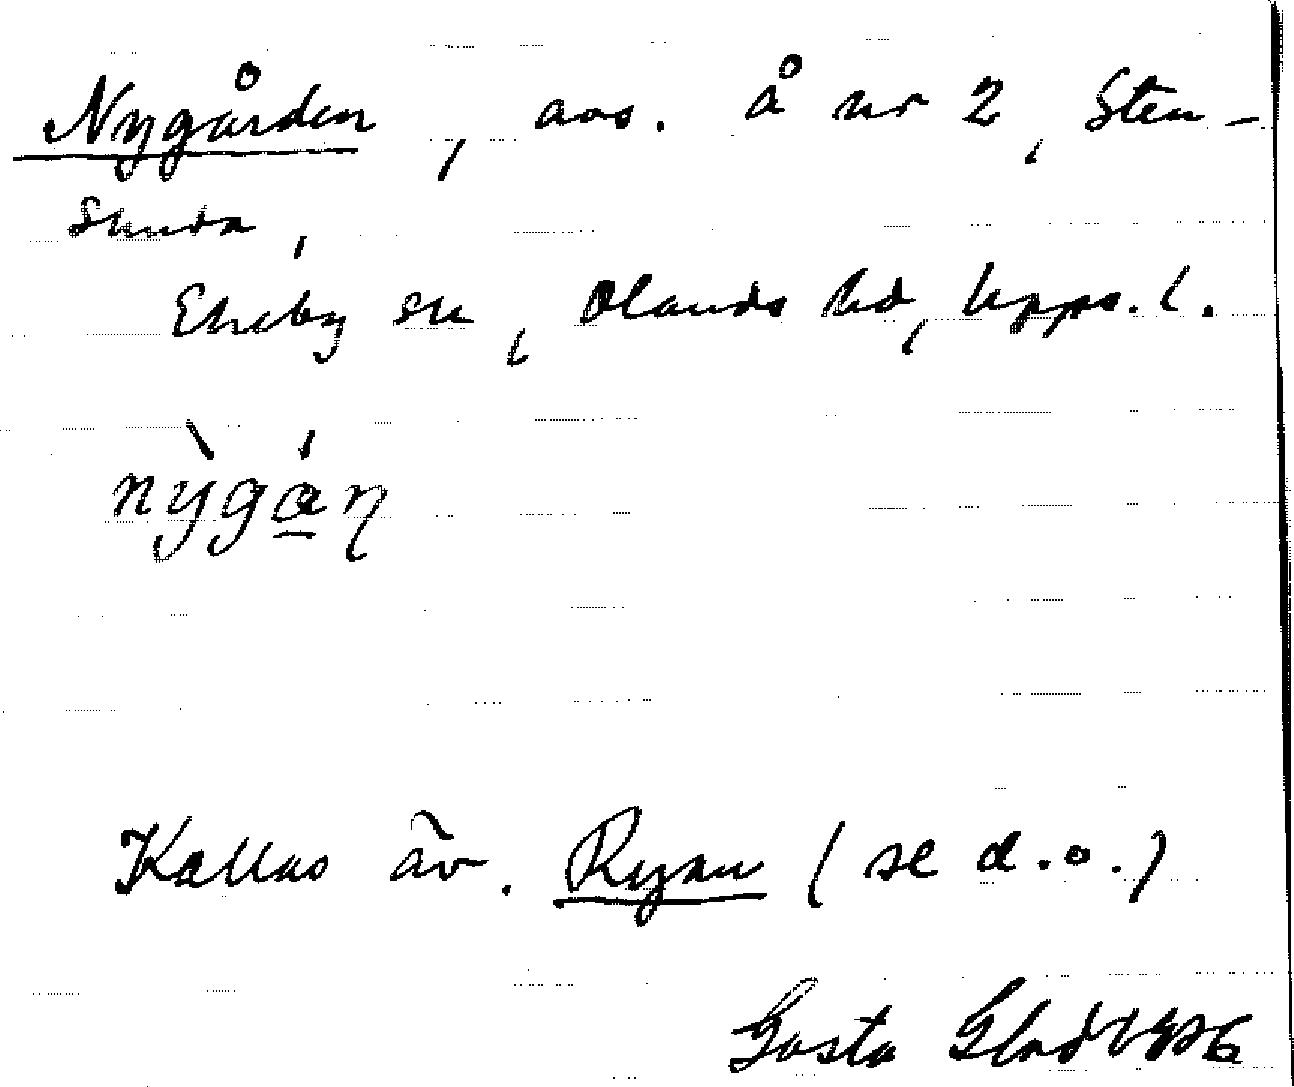 Nygården, avs. Å nr 2, Sten-
skuta,
Ekeby sn, Olands hd, Upps. l.
nỳgán
Kallas äv. Ryan (se d.o.)
Gösta